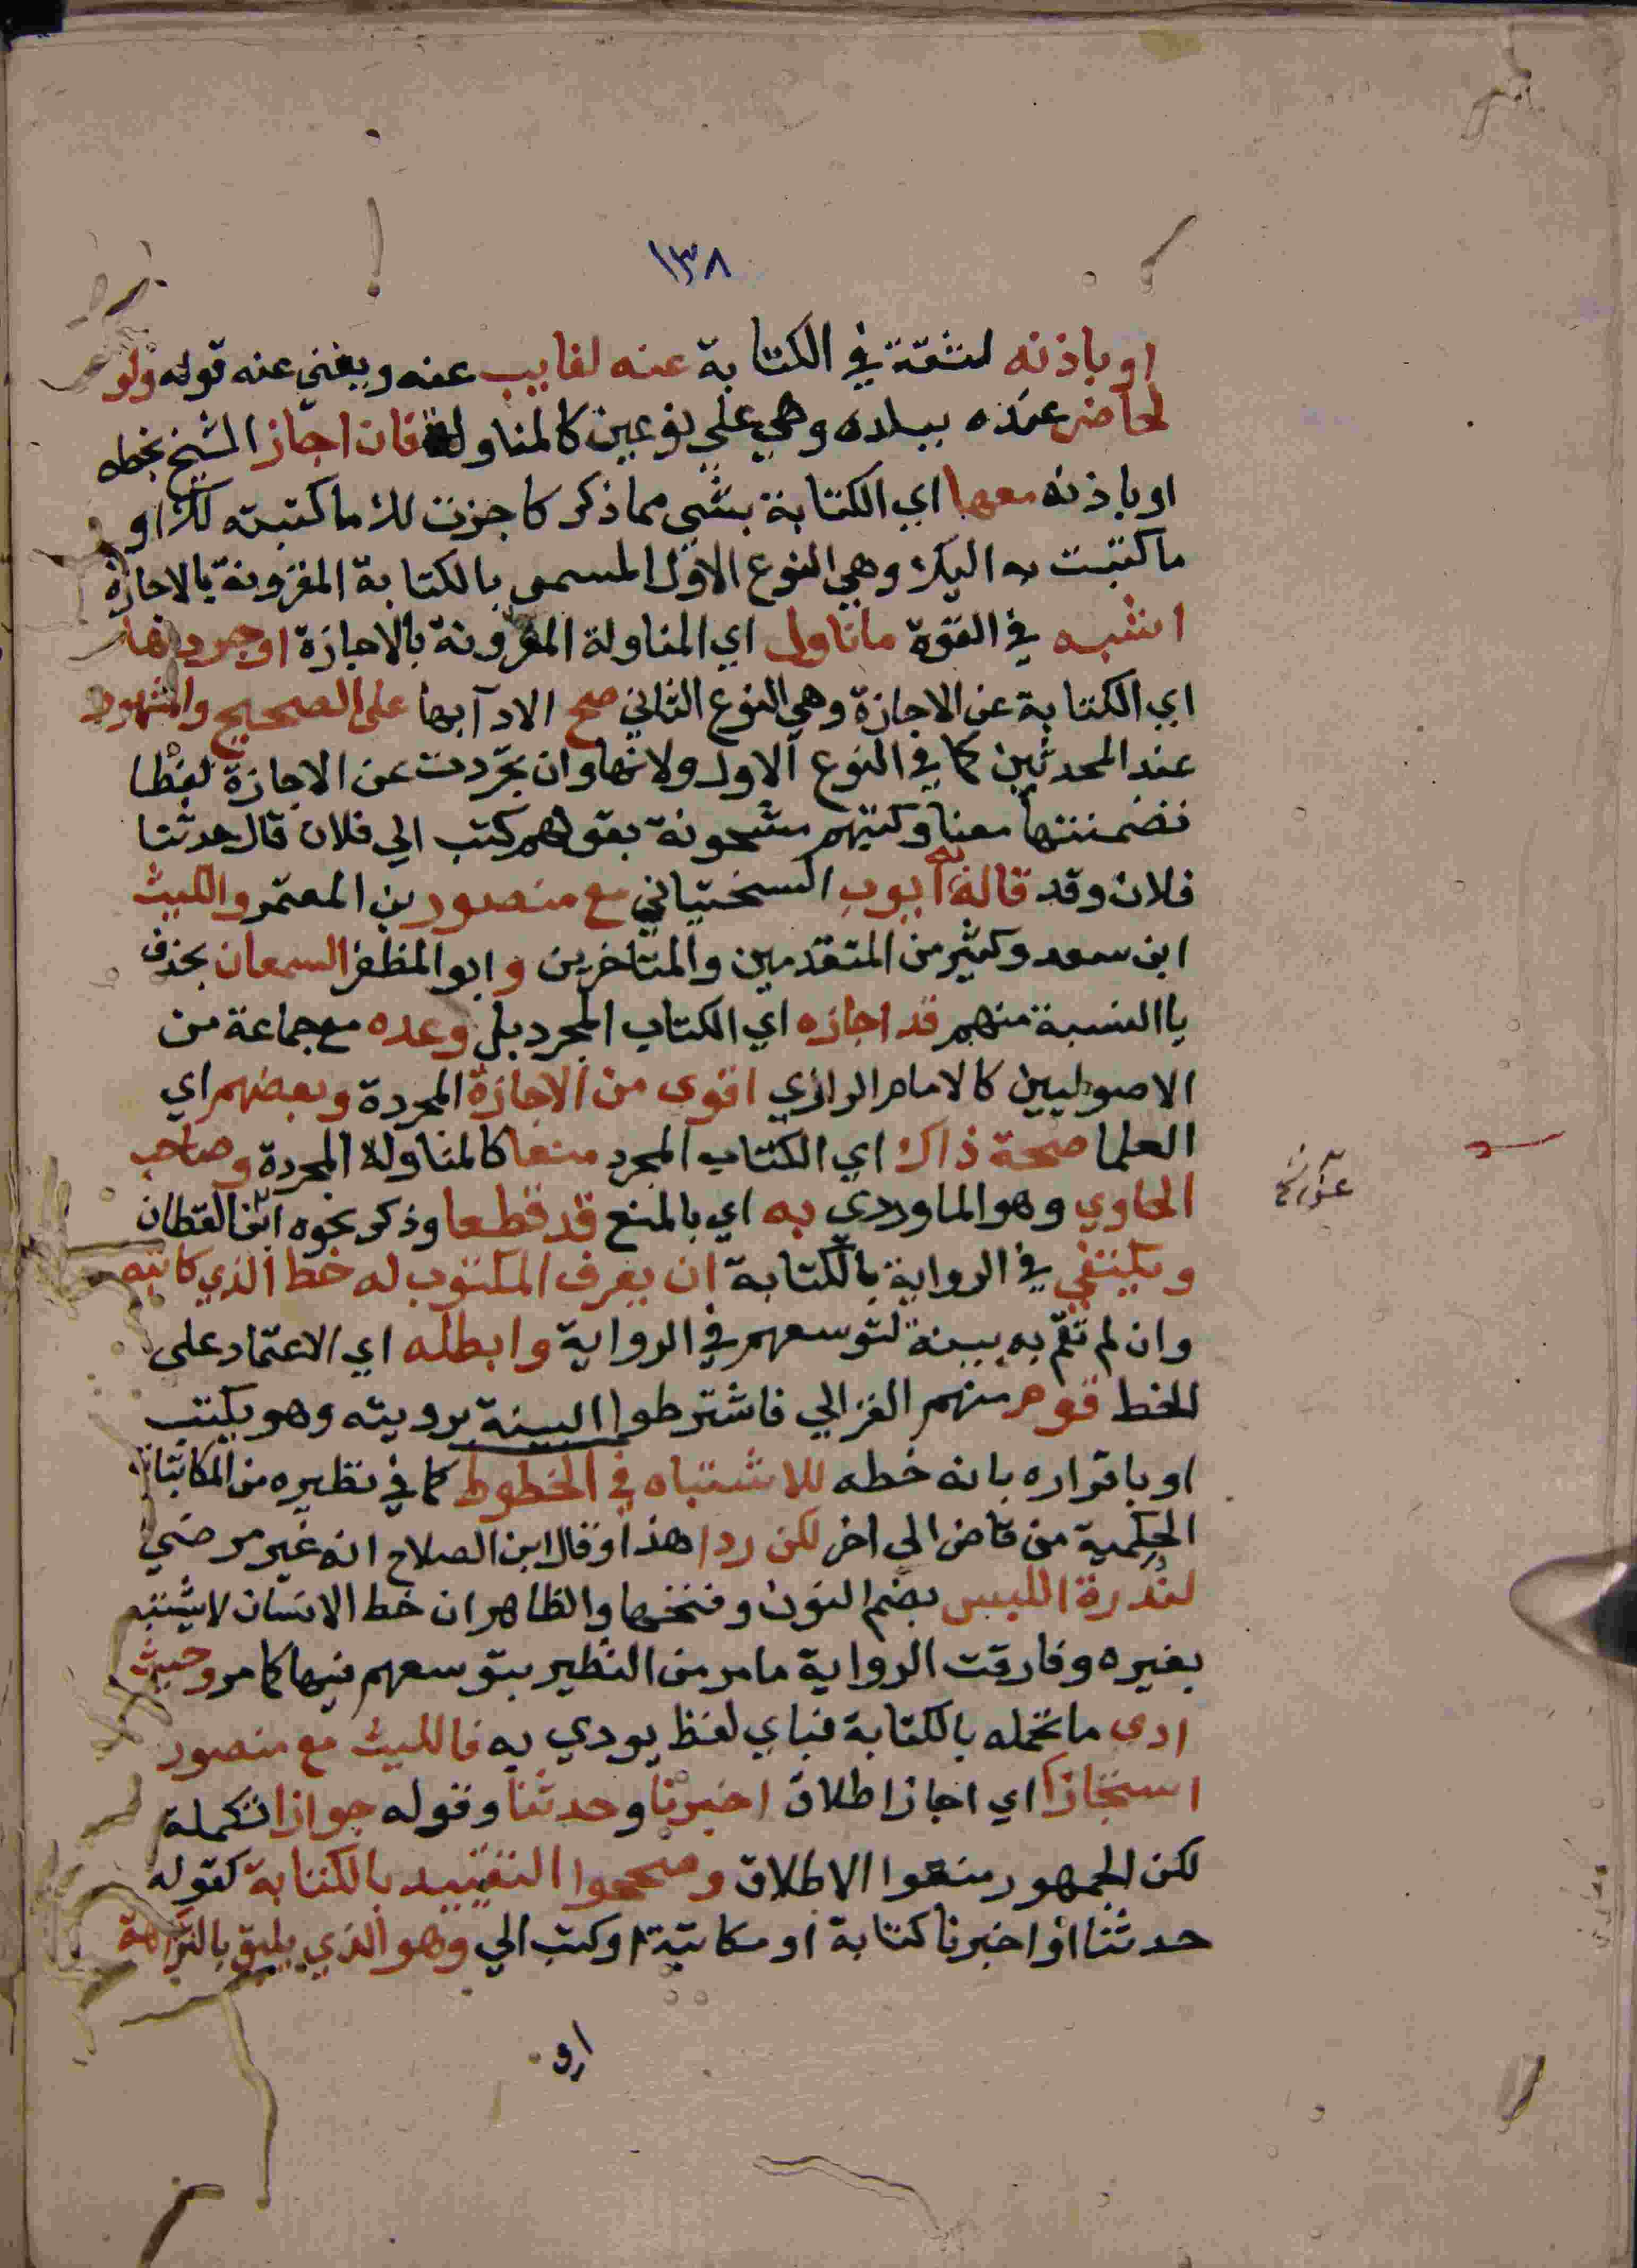 ١٣٨
او باذنه لثقة في الكتابة عنه لغايب عنه ويغني عنه قوله ولو
لحاضر عنده ببلده وهي علي نوعين كالمناولة فان اجاز الشيخ بخطه
او باذنه معها اي الكتابة بشي مما ذكر كاجزت لك ما كتبته لك او
ما كتبت به اليك وهي النوع الاول المسمى بالكتابة المقرونة بالاجازة
اشبه في القوة ما ناول اي المناولة المقرونة بالاجازة او جردها
اي الكتابة عن الاجازة وهي النوع الثاني صح الادآ بها على الصحيح والمشهور
عند المحدثين كما في النوع الاول ولانها وان تجردت عن الاجازة لفظا
تضمنتها معنا وكتبهم مشحونة بقولهم كتب الي فلان قال حدثنا
فلان وقد قال به ايوب السختياني مع منصور بن المعتمر والليث
ابن سعد وكثير من المتقدمين والمتاخرين وابو المظفر السمعان بحذف
يا النسبة منهم قد اجازه اي الكتاب المجرد بل وعده مع جماعة من
الاصوليين كالامام الرازي اقوى من الاجازة المجردة وبعضهم اي
العلما صحة ذاك اي الكتاب المجرد منعا كالمناولة المجردة وصاحب
الحاوي وهو الماوردي به اي بالمنع قد قطعا وذكر نحوه ابن القطان
ويكتفي في الرواية بالكتابة ان يعرف المكتوب له خط الذي كاتبه
وان لم تقم به بينة لتوسعهم في الرواية وابطله اي الاعتماد على
الخط قوم منهم الغزالي فاشترطوا البينة برويته وهو يكتب
او باقراره بانه خطه للاشتباه في الخطوط كما في نظيره من المكاتبات
الحكمية من قاض الى اخر لكن ردا هذا وقال ابن الصلاح انه غير مرضي
لندرة اللبس بضم النون وفتحها والظاهر ان خط الانسان لا يشتبه
بغيره وفارقت الرواية ما مر من النظير بتوسعهم فيها كما مر وحيث
ادى ما تحمله بالكتابة فباي لفظ يودي به فالليث مع منصور
استجازا اي اجازا اطلاق اخبرنا وحدثنا وقوله جوازا تكملة
لكن الجمهور منعوا الاطلاق وصححوا التقييد بالكتابة كقوله
حدثنا او اخبرنا كتابة او مكاتبة او كتب الي وهو الذي يليق بالنزاهة